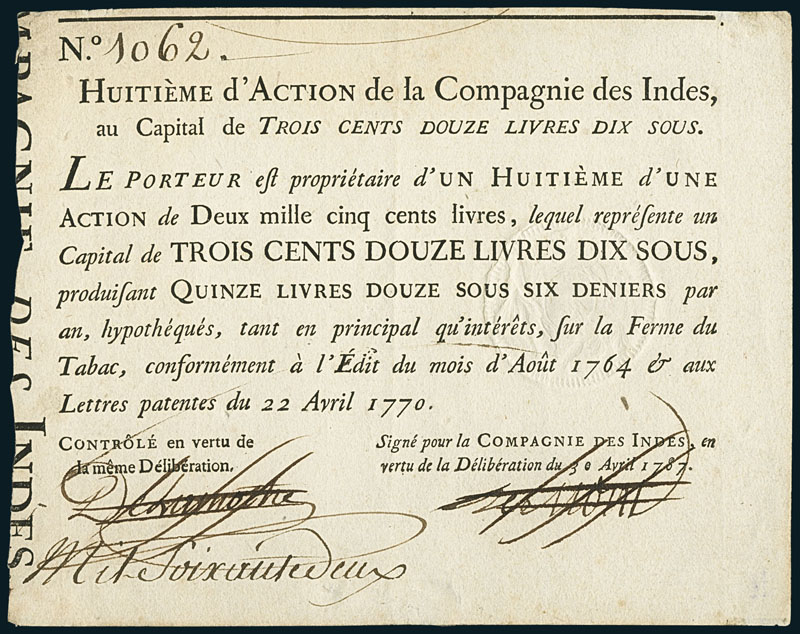 N.º 1062.
HUITIÈME d'ACTION de la Compagnie des Indes,
au Capital de TROIS CENTS DOUZE LIVRES DIX SOUS.
LE PORTEUR eſt propriétaire d'UN HUITIÈME d'UNE
ACTION de Deux mille cinq cents livres, lequel repréſente un
Capital de TROIS CENTS DOUZE LIVRES DIX SOUS,
produiſant QUINZE LIVRES DOUZE SOUS SIX DENIERS par
an, hypothéqués, tant en principal qu'intérêts, ſur la Ferme du
Tabac, conformément à l'Édit du mois d'Août 1764 & aux
Lettres patentes du 22 Avril 1770.
CONTRÔLÉ en vertu de
la même Délibération.
Signé pour la COMPAGNIE DES INDES, en
vertu de la Délibération du 30 Avril 1787.
Mil Soixante deux
DES INDES